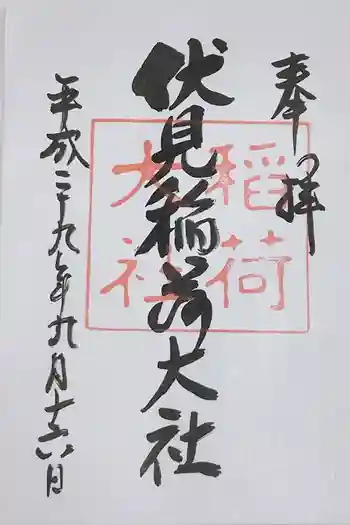 奉拝
伏見稲荷大社
稲荷
大社
平成二十九年九月十六日